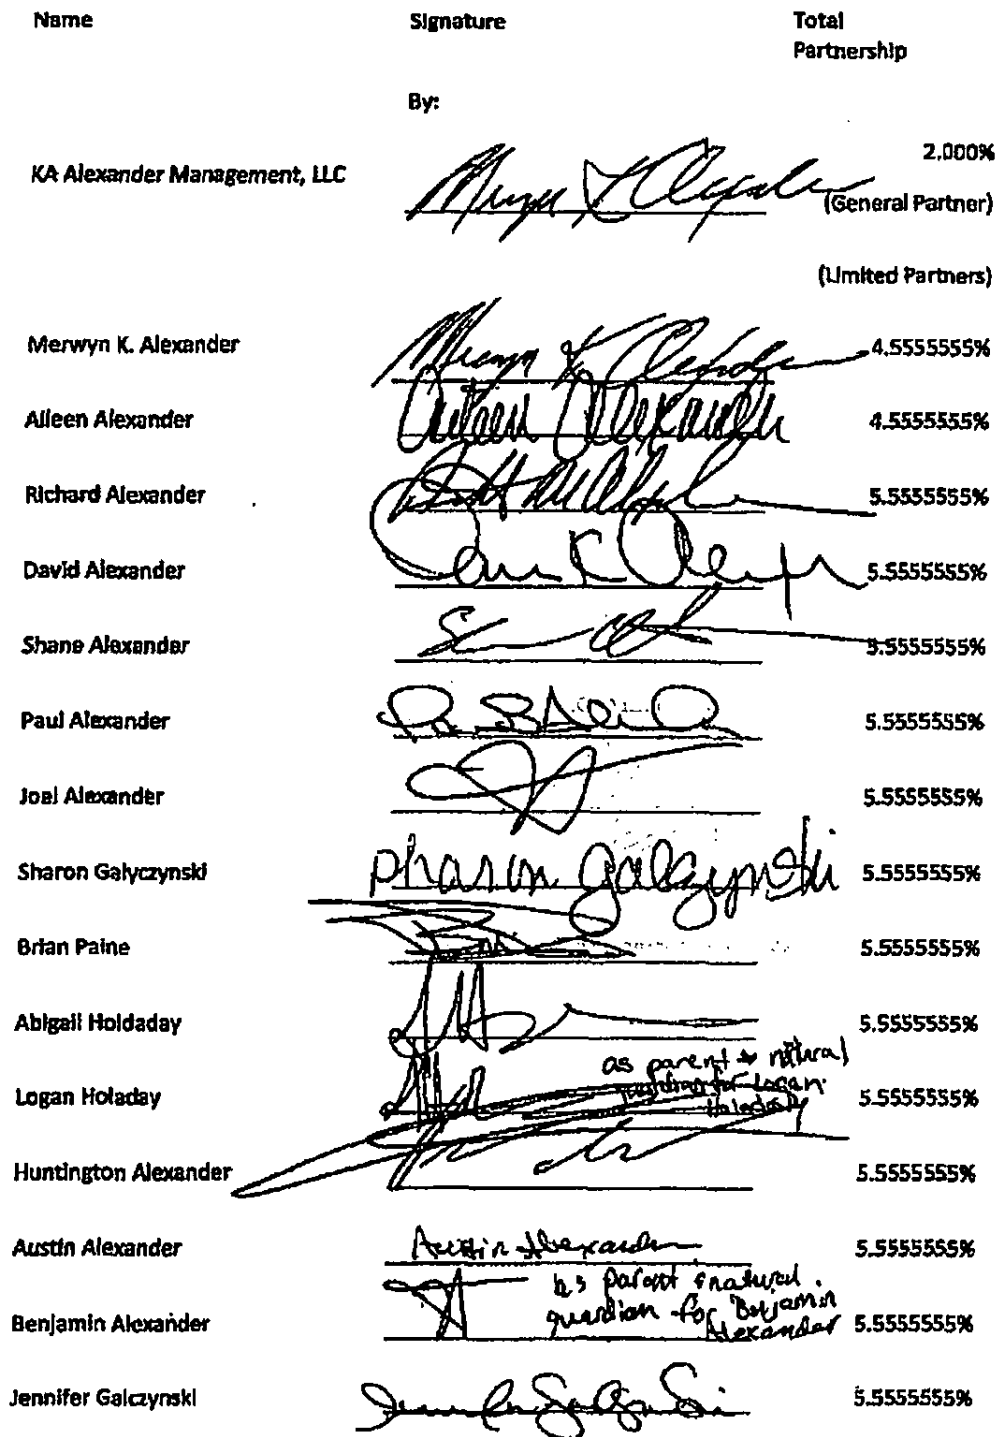 Name Signature Total
Partnership
By:
KA Alexander Management, LLC 2.000%
(General Partner)
(Limited Partners)
Merwyn K. Alexander Merwyn K Alexander 4.5555555%
Aileen Alexander Aileen Alexander 4.5555555%
Richard Alexander 5.5555555%
David Alexander 5.5555555%
Shane Alexander 5.5555555%
Paul Alexander 5.5555555%
Joel Alexander 5.5555555%
Sharon Galyczynski Sharon Galczynski 5.5555555%
Brian Paine 5.5555555%
Abigail Holdaday 5.5555555%
as parent & natural
guardian for Logan
Logan Holaday Holaday 5.5555555%
Huntington Alexander 5.5555555%
Austin Alexander Austin Alexander 5.5555555%
as parent & natural
Benjamin Alexander guardian for Benjamin
Alexander 5.5555555%
Jennifer Galczynski 5.5555555%